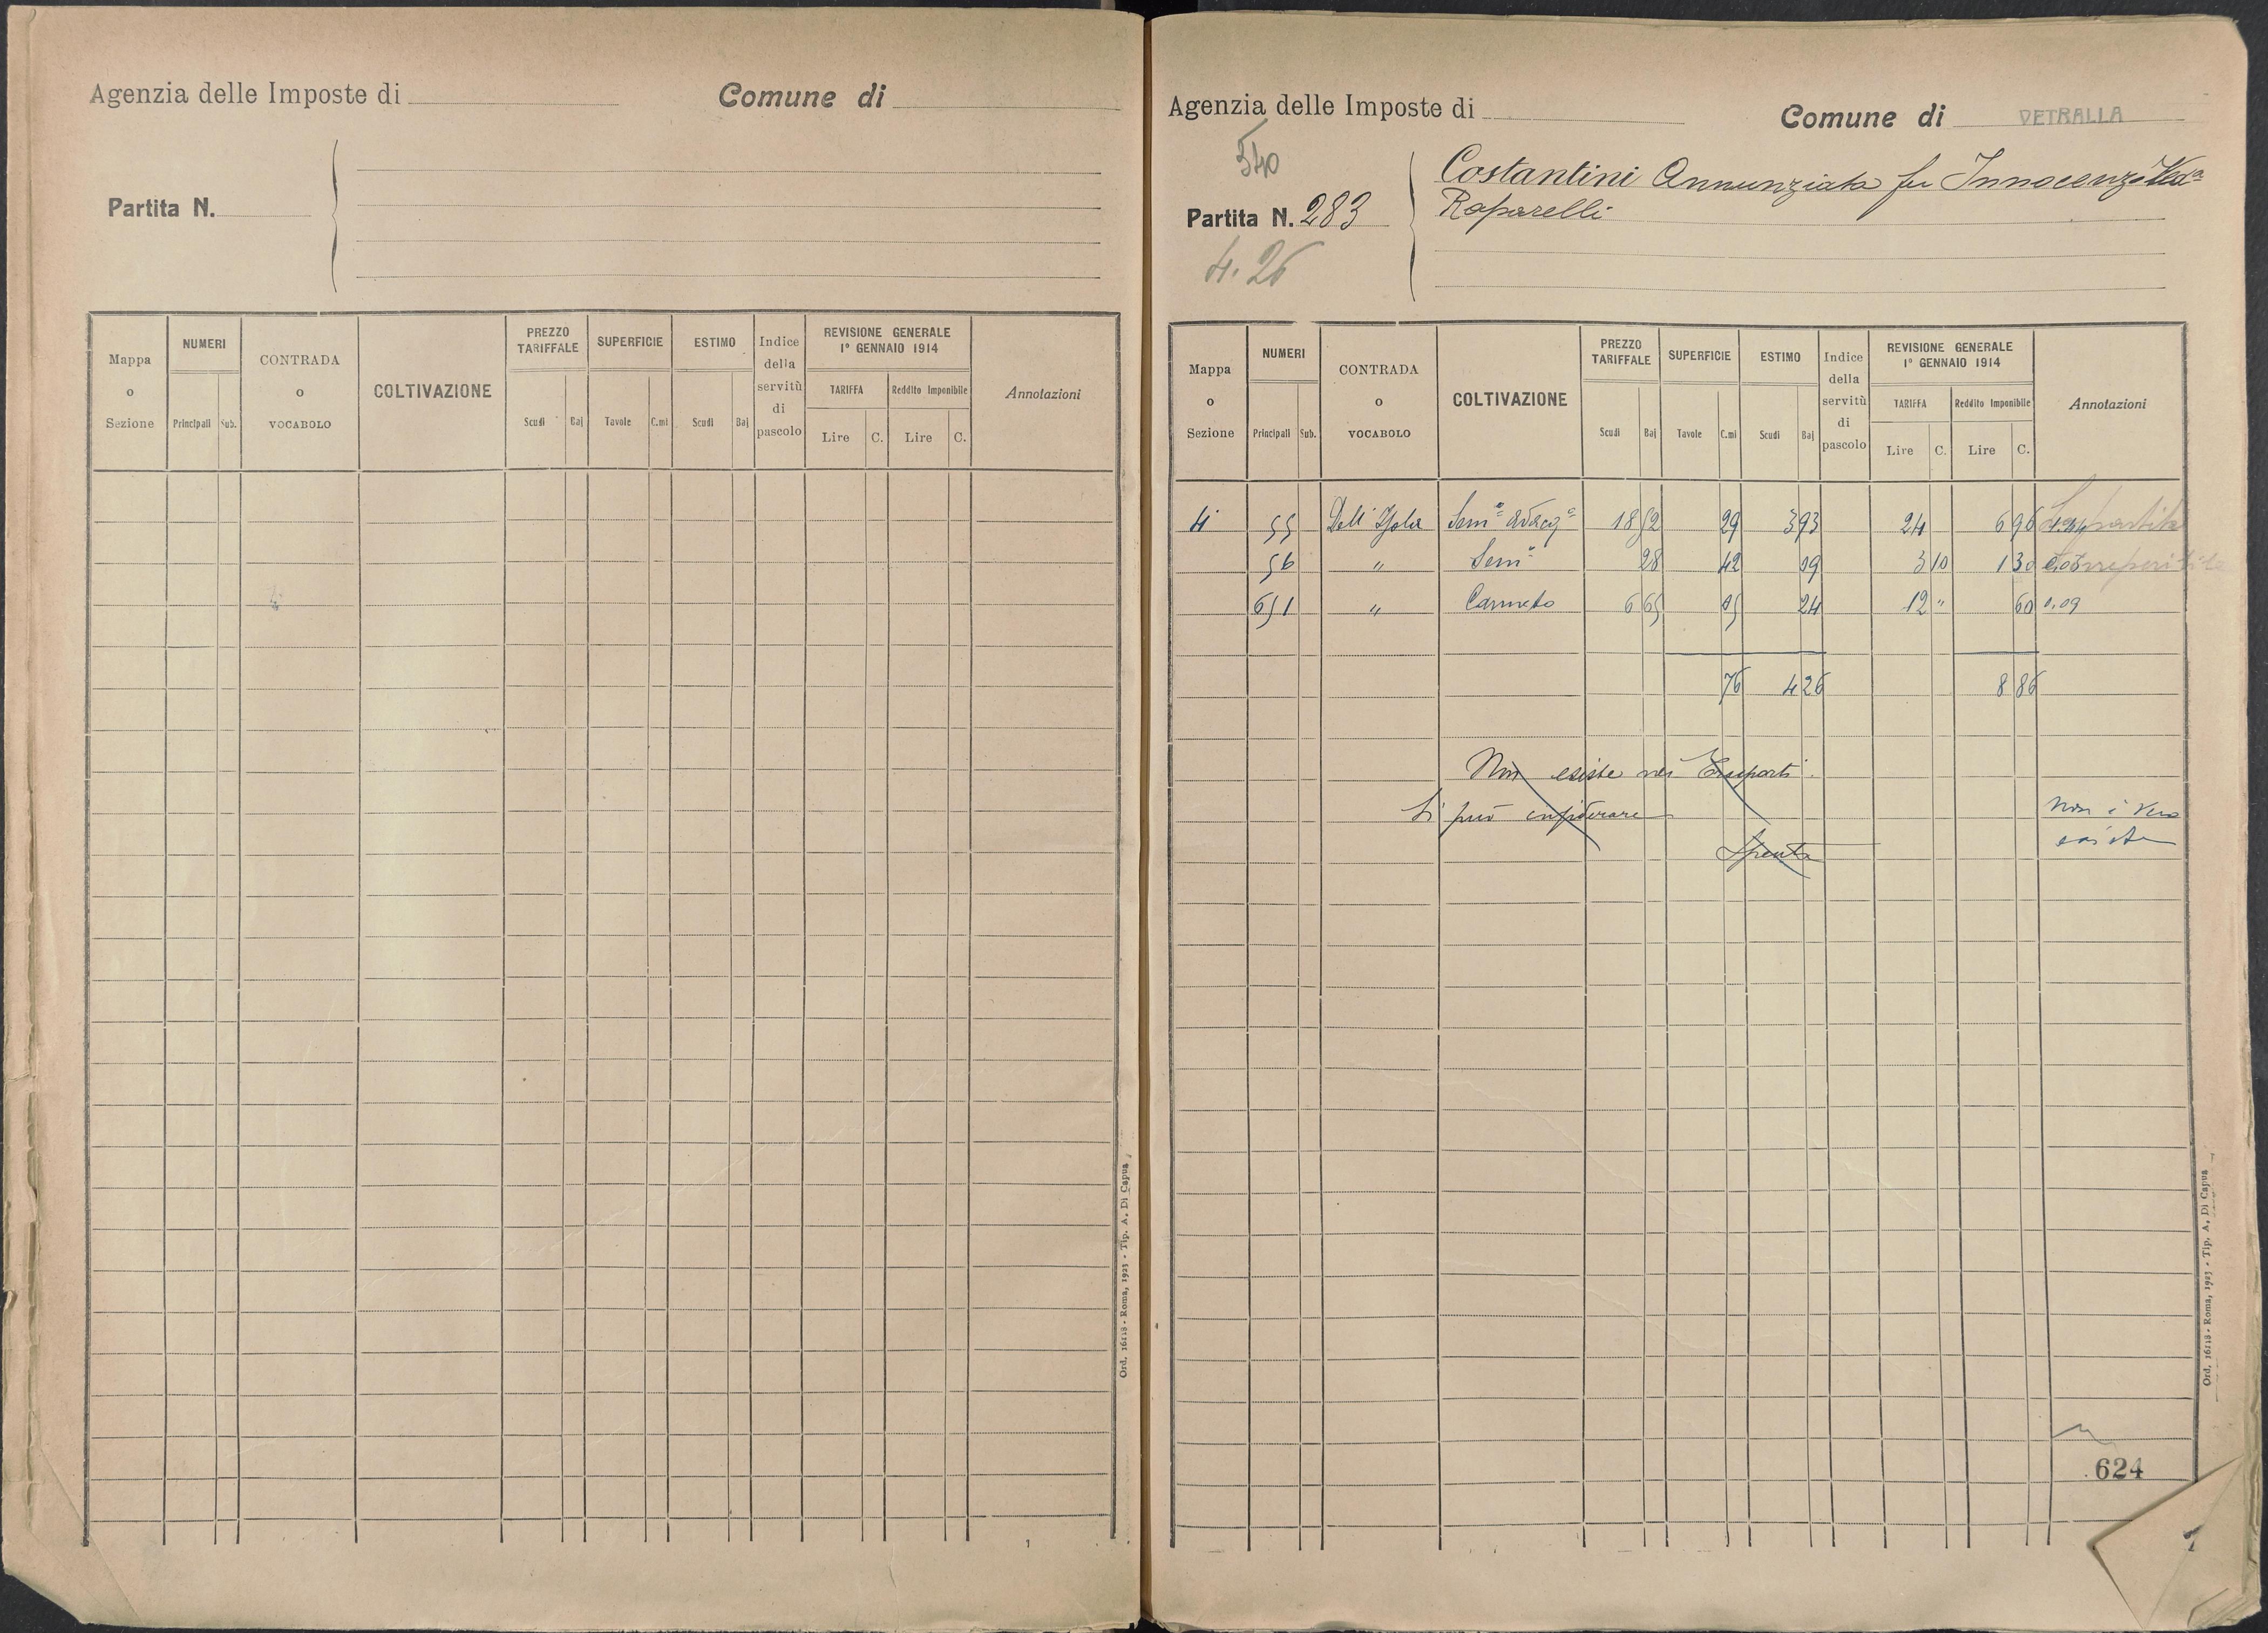 Agenzia delle Imposte di Comune di
Partita N.
Mappa o Sezione NUMERI Principali Sub. CONTRADA o VOCABOLO COLTIVAZIONE PREZZO TARIFFALE Scudi Baj SUPERFICIE Tavole C.mi ESTIMO Scudi Baj Indice della servitù di pascolo REVISIONE GENERALE 1° GENNAIO 1914 TARIFFA Lire C. Reddito Imponibile Lire C. Annotazioni
Ord. 16118 - Roma, 1923 - Tip. A. Di Capua
Agenzia delle Imposte di Comune di VETRALLA
540
Partita N. 283 Costantini Annunziata fu Innocenzo Ved.a
Raparelli
4.26
Mappa o Sezione NUMERI Principali Sub. CONTRADA o VOCABOLO COLTIVAZIONE PREZZO TARIFFALE Scudi Baj SUPERFICIE Tavole C.mi ESTIMO Scudi Baj Indice della servitù di pascolo REVISIONE GENERALE 1° GENNAIO 1914 TARIFFA Lire C. Reddito Imponibile Lire C. Annotazioni
4 55 Dell' Isola Sem.o adacq.o 18 52 29 3 93 24 6 96
56 " Sem.o 28 42 09 3 10 1 30
651 " Canneto 6 65 05 24 12 " 60 0.09
76 4 26 8 86
Non esiste nei Trasporti.
Si può considerare
Spenta
Non è vero
esiste
624
Ord. 16118 - Roma, 1923 - Tip. A. Di Capua